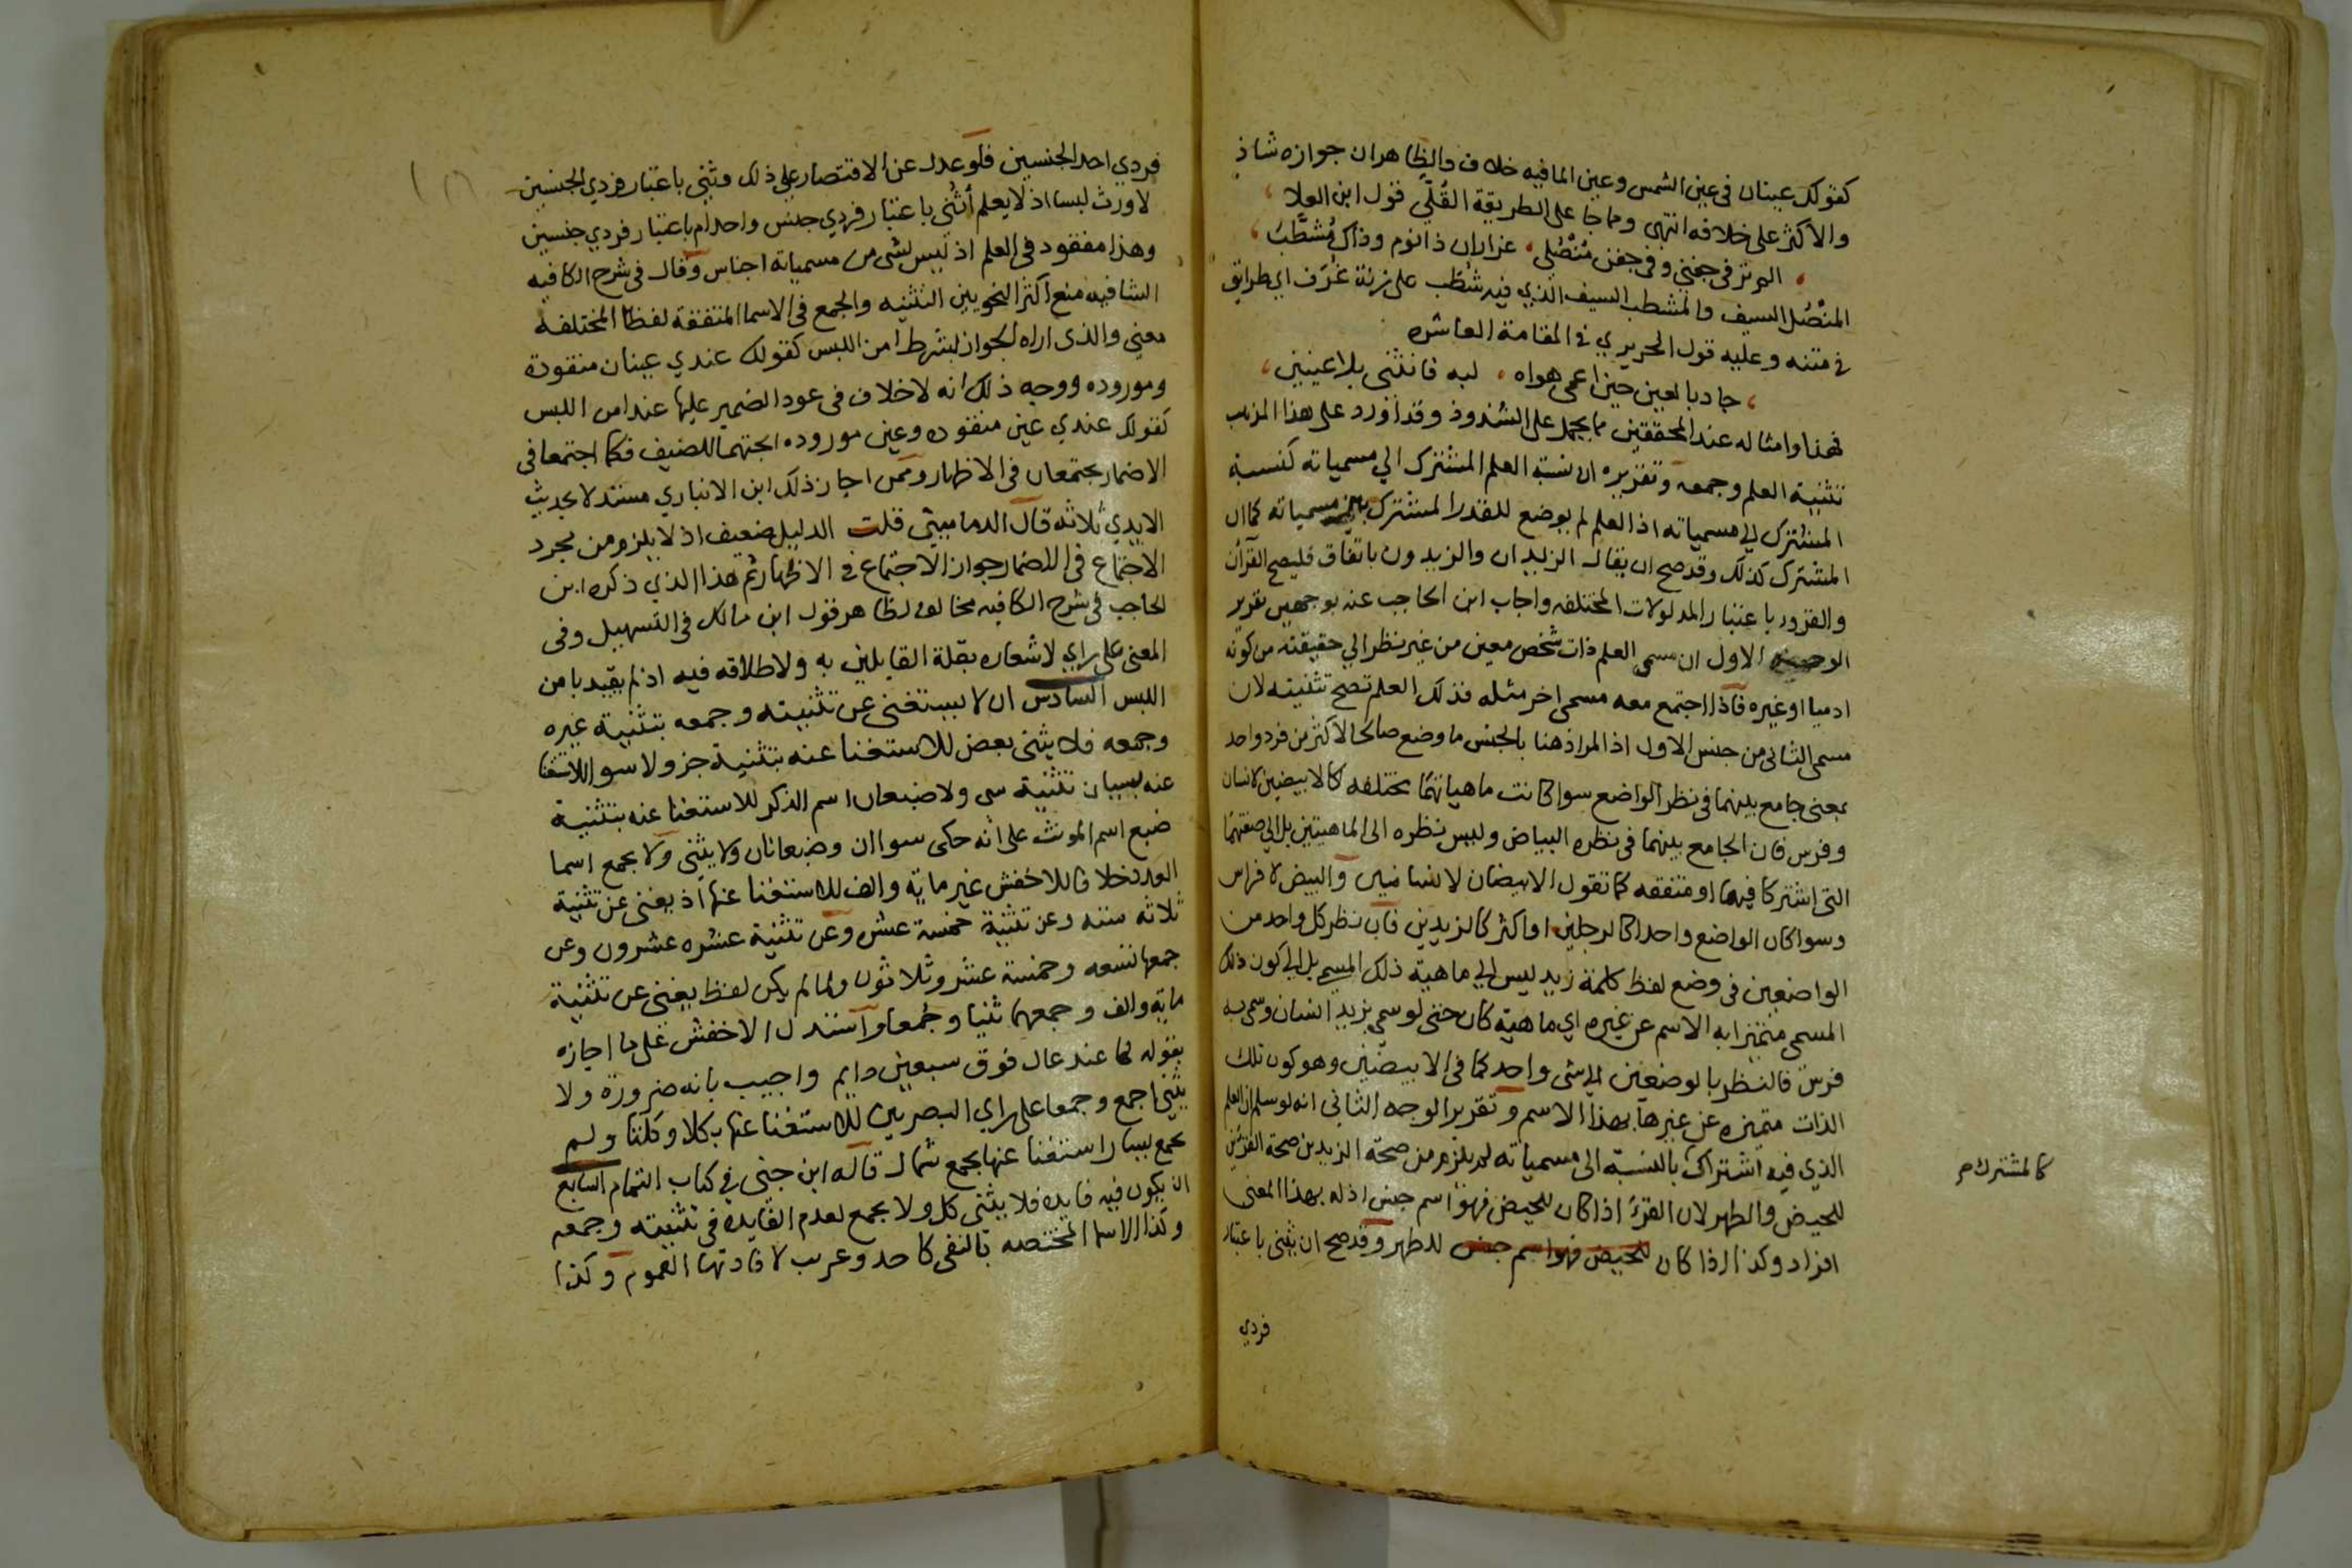 كقولك عينان فى عين الشمس وعين الما فيه خلاف والظاهران جوازه شاذ
والاكثر على خلافه انتهى ومما جا على الطريقة القُلّى قول ابن العلا
الم تر فى جفنى وفى جفن مُنْصُلى عزاران ذا نوم وذاك مُشَطَّبُ
المنْصُل السيف والمشطب السيف الذي فيه شُطَب على زنة غُرَف اي طرايق
فى متنه وعليه قول الحريري فى المقامة العاشره
جاد بالعين حين اعمى هواه لبه فانثنى بلا عينين
فهذا وامثاله عند المحققين مما يحمل على الشذوذ وقد اورد على هذا المذهب
تثنية العلم وجمعه وتقريره ان نسبة العلم المشترك الي مسمياته كنسبة
المشترك الي مسمياته اذ العلم لم يوضع للقدر المشترك بين مسمياته كما ان
المشترك كذلك وقد صح ان يقال الزيدان والزيدون باتفاق فليصح القرآن
والقرود باعتبار المدلولات المختلفه واجاب ابن الحاجب عنه بوجهين تقرير
الوجه الاول ان مسمى العلم ذات شخص معين من غير نظر الي حقيقته من كونه
ادميا او غيره فاذا اجتمع معه مسمى اخر مثله فذلك العلم تصح تثنيته لان
مسمى الثانى من جنس الاول اذ المراد هنا بالجنس ما وضع صالحا لاكثر من فرد واحد
بمعنى جامع بينهما فى نظر الواضع سوا كانت ماهياتهما مختلفه كالابيضين لانسان
وفرس فان الجامع بينهما فى نظره البياض وليس نظره الى الماهيتين بل الى صفتهما
التى اشتركا فيها او متفقه كما تقول الابيضان لانسانين والبيض لافراس
وسوا كان الواضع واحدا كالرجلين او اكثر كالزيدين فان نظر كل واحد من
الواضعين فى وضع لفظ كلمة زيد ليس الي ماهية ذلك المسمى بل الى كون ذلك
المسمى متميزا به الاسم عن غيره اي ماهية كان حتى لو سمي بزيد انسان وسمى به
فرس فالنظر بالوضعين الي شى واحد كما فى الابيضين وهو كون تلك
الذات متميزه عن غيرها بهذا الاسم وتقرير الوجه الثانى انه لو سلم ان العلم
كالمشترك م
الذي فيه اشتراك بالنسبة الى مسمياته لم يلزم من صحة الزيدين صحة القرئين
للحيض والطهر لان القرْءَ اذا كان للحيض فهو اسم جنس اذ له بهذا المعنى
افراد وكذا اذا كان للحيض فهو اسم جنس للطهر وقد صح ان يثنى باعتبار
فردي
فردي احد الجنسين فلو عدل عن الاقتصار علي ذلك وثنى باعتبار فردي الجنسين
لاورث لبسا اذ لا يعلم أثُنى باعتبار فردي جنس واحد ام باعتبار فردي جنسين
وهذا مفقود فى العلم اذ ليس لشى من مسمياته اجناس وقال فى شرح الكافيه
الشافيه منع اكثر النحويين التثنيه والجمع فى الاسما المتفقة لفظا المختلفه
معنى والذى اراه الجواز بشرط امن اللبس كقولك عندي عينان منقودة
وموروده ووجه ذلك انه لا خلاف فى عود الضمير عليها عند امن اللبس
كقولك عندي عين منقوده وعين موروده ابحتهما للضيف فكما اجتمعا فى
الاضمار يجتمعان فى الاظهار وممن اجاز ذلك ابن الانباري مستدلا بحديث
الايدي ثلاثه قال الدمامينى قلت الدليل ضعيف اذ لا يلزم من مجرد
الاجتماع فى الاضمار جواز الاجتماع فى الاظهار ثم هذا الذي ذكره ابن
الحاجب فى شرح الكافيه مخالف لظاهر قول ابن مالك فى التسهيل وفى
المعنى على راي لاشعاره بقلة القايلين به ولاطلاقه فيه اذ لم يقيد بامن
اللبس السادس ان لا يستغنى عن تثنيته وجمعه بتثنية غيره
وجمعه فلا يثنى بعض للاستغنا عنه بتثنية جزو ولا سوا للاستغنا
عنه بسيان تثنية سى ولا ضبعان اسم الذكر للاستغنا عنه بتثنية
ضبع اسم المونث على انه حكى سواان وضبعانان ولا يثنى ولا يجمع اسما
العدد خلافا للاخفش غير ماية والف للاستغنا عنها اذ يغنى عن تثنية
ثلاثه سته وعن تثنية خمسة عشره وعن تثنية عشره عشرون وعن
جمعها تسعه وخمسة عشر وثلاثون ولما لم يكن لفظ يغنى عن تثنية
ماية والف وجمعهما ثنيا وجُمعا واستدل الاخفش على ما اجازه
بقوله لها عند عال فوق سبعين دايم واجيب بانه ضرورة ولا
يثنى اجمع وجمعا على راي البصريين للاستغنا عنها بكلا وكلتا ولم
يجمع يسار استغنا عنها بجمع شمال قاله ابن جنى فى كتاب التمام السابع
ان يكون فيه فايده فلا يثنى كل ولا يجمع لعدم الفايده فى تثنيته وجمعه
وكذا الاسما المختصه بالنفى كاحد وعريب لافادتها العموم وكذا